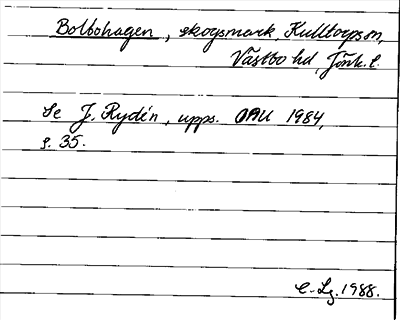 Bolbohagen, skogsmark, Kulltorps sn,
Västbo hd, Jönk. l.
Se J. Rydén, upps. OAU 1984,
s. 35.
C-Lg. 1988.